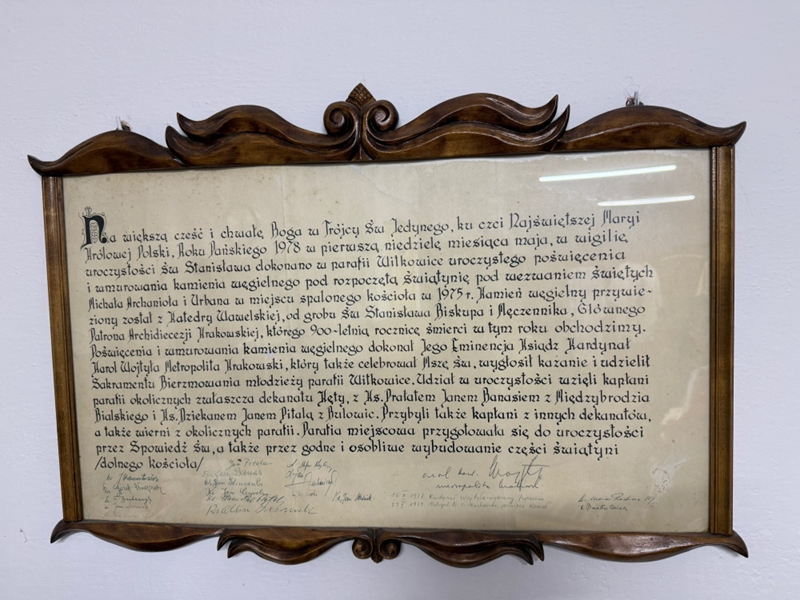 Na większą cześć i chwałę Boga w Trójcy Św Jedynego, ku czci Najświętszej Maryi
Królowej Polski, Roku Pańskiego 1978 w pierwszą niedzielę miesiąca maja, w wigilię
uroczystości Św Stanisława dokonano w parafii Witkowice uroczystego poświęcenia
i wmurowania kamienia węgielnego pod rozpoczętą świątynię pod wezwaniem świętych
Michała Archanioła i Urbana w miejscu spalonego kościoła w 1975 r. Kamień węgielny przywie-
ziony został z Katedry Wawelskiej, od grobu Św Stanisława Biskupa i Męczennika, Głównego
Patrona Archidiecezji Krakowskiej, którego 900-letnią rocznicę śmierci w tym roku obchodzimy.
Poświęcenia i wmurowania kamienia węgielnego dokonał Jego Eminencja Ksiądz Kardynał
Karol Wojtyła Metropolita Krakowski, który także celebrował Mszę św, wygłosił kazanie i udzielił
Sakramentu Bierzmowania młodzieży parafii Witkowice. Udział w uroczystości wzięli kapłani
parafii okolicznych zwłaszcza dekanatu Kęty, z Ks. Prałatem Janem Banasiem z Międzybrodzia
Bialskiego i Ks. Dziekanem Janem Pitalą z Bulowic. Przybyli także kapłani z innych dekanatów,
a także wierni z okolicznych parafii. Parafia miejscowa przygotowała się do uroczystości
przez Spowiedź Św, a także przez godne i osobliwe wybudowanie części świątyni
/dolnego kościoła/